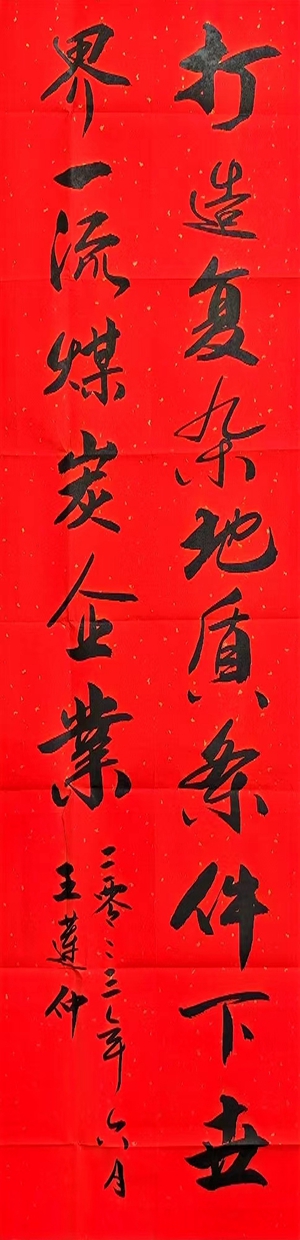 打造复杂地质条件下世
界一流煤炭企業
二零二三年六月
王莲仲